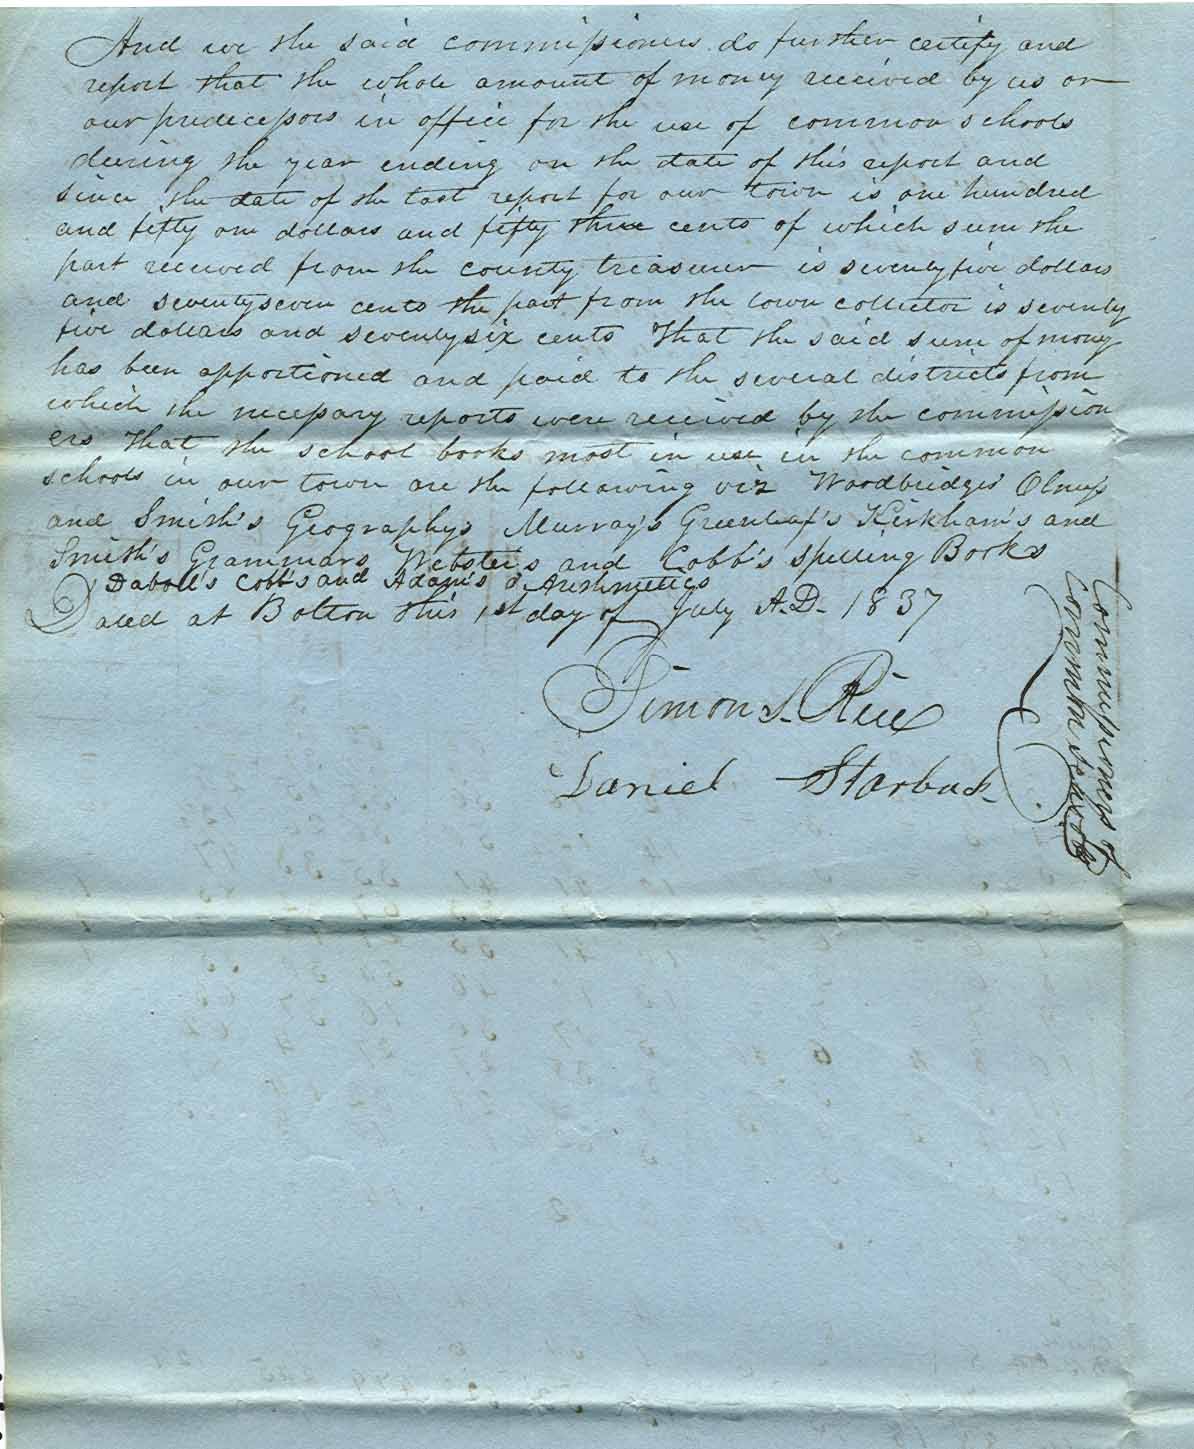 And we the said commissioners do further certify and
report that the whole amount of money received by us or
our predecessors in office for the use of common schools
during the year ending on the date of this report and
since the date of the last report for our town is one hundred
and fifty one dollars and fifty three cents of which sum the
part received from the county treasurer is seventy five dollars
and seventy seven cents the part from the town collector is seventy
five dollars and seventy six cents That the said sum of mony
has been apportioned and paid to the several districts from
which the necessary reports were received by the commission
ers That the school books most in use in the common
schools in our town are the following viz Woodbridges Olneys
and Smith's Geographys Murray's Greenleaf's Kirkham's and
Smith's Grammars Webster's and Cobb's Spelling Books
Daboll's Cobb's and Adam's Arithmetics
Dated at Bolton this 1st day of July A.D. 1837
Simon S. Rice
Daniel Starbuck
Commissioners of
Common Schools